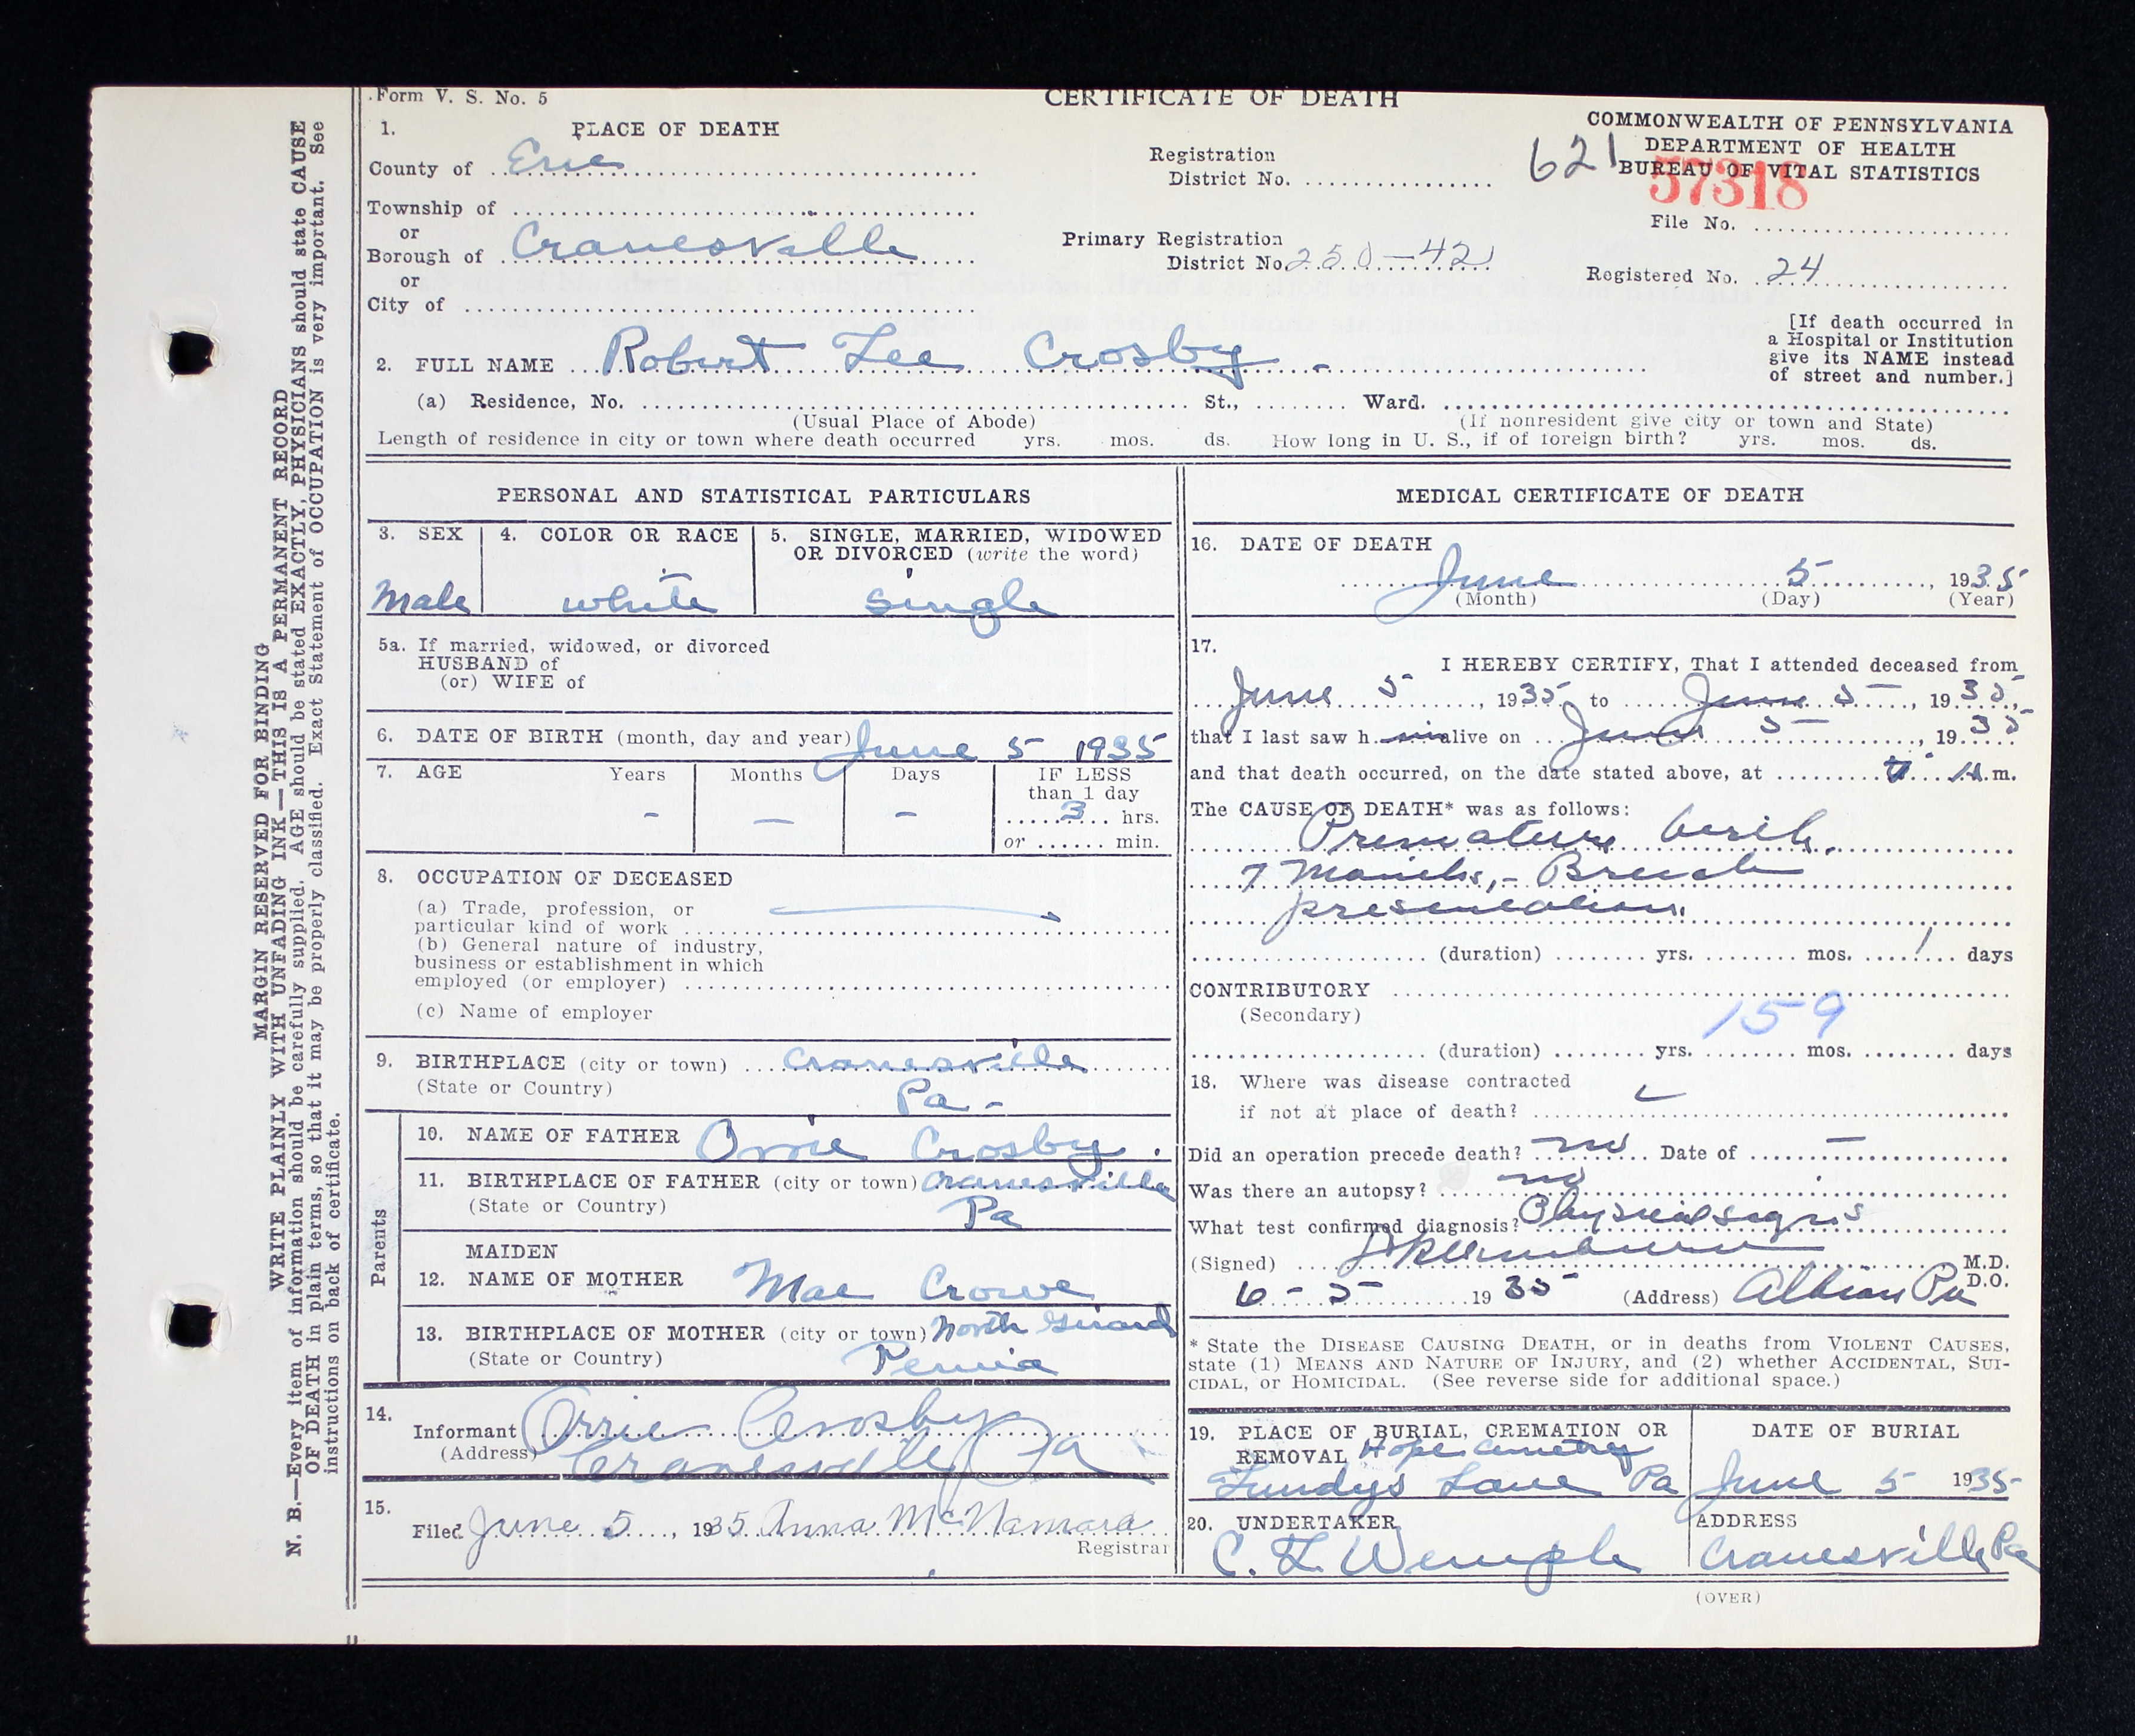 Form V. S. No. 5
CERTIFICATE OF DEATH
COMMONWEALTH OF PENNSYLVANIA
DEPARTMENT OF HEALTH
BUREAU OF VITAL STATISTICS
621
57318
File No.
Registered No. 24
1. PLACE OF DEATH
County of Erie
Township of
or
Borough of Cranesville
or
City of
Registration
District No.
Primary Registration
District No. 250-42
[If death occurred in
a Hospital or Institution
give its NAME instead
of street and number.]
2. FULL NAME Robert Lee Crosby
(a) Residence, No. St., Ward.
(Usual Place of Abode) (If nonresident give city or town and State)
Length of residence in city or town where death occurred yrs. mos. ds. How long in U. S., if of foreign birth? yrs. mos. ds.
PERSONAL AND STATISTICAL PARTICULARS
3. SEX 4. COLOR OR RACE 5. SINGLE, MARRIED, WIDOWED
OR DIVORCED (write the word)
Male white single
5a. If married, widowed, or divorced
HUSBAND of
(or) WIFE of
6. DATE OF BIRTH (month, day and year) June 5 1935
7. AGE Years Months Days IF LESS
than 1 day
- - - 3 hrs.
or min.
8. OCCUPATION OF DECEASED
(a) Trade, profession, or
particular kind of work
(b) General nature of industry,
business or establishment in which
employed (or employer)
(c) Name of employer
9. BIRTHPLACE (city or town) Cranesville
(State or Country) Pa-
Parents
10. NAME OF FATHER Orrie Crosby
11. BIRTHPLACE OF FATHER (city or town) Cranesville
(State or Country) Pa
MAIDEN
12. NAME OF MOTHER Mae Crowe
13. BIRTHPLACE OF MOTHER (city or town) North Girard
(State or Country) Penna
14.
Informant Orrie Crosby
(Address) Cranesville Pa
15.
Filed June 5, 1935 Anna McNamara
Registrar
MEDICAL CERTIFICATE OF DEATH
16. DATE OF DEATH
June 5, 1935
(Month) (Day) (Year)
17.
I HEREBY CERTIFY, That I attended deceased from
June 5, 1935 to June 5, 1935,
that I last saw h im alive on June 5, 1935
and that death occurred, on the date stated above, at m.
The CAUSE OF DEATH* was as follows:
Premature birth.
7 Months,- Breech
presentation.
(duration) yrs. mos. 1 days
CONTRIBUTORY
(Secondary)
159
(duration) yrs. mos. days
18. Where was disease contracted
if not at place of death?
Did an operation precede death? no Date of -
Was there an autopsy? no
What test confirmed diagnosis? Physical signs
(Signed) M.D.
D.O.
6-5 1935 (Address) Albion Pa
* State the DISEASE CAUSING DEATH, or in deaths from VIOLENT CAUSES,
state (1) MEANS AND NATURE OF INJURY, and (2) whether ACCIDENTAL, SUI-
CIDAL, or HOMICIDAL. (See reverse side for additional space.)
19. PLACE OF BURIAL, CREMATION OR
REMOVAL Hope Cemetery
Lundys Lane Pa
DATE OF BURIAL
June 5 1935
20. UNDERTAKER
C. L. Wemple
ADDRESS
Cranesville Pa
(OVER)
MARGIN RESERVED FOR BINDING
WRITE PLAINLY WITH UNFADING INK—THIS IS A PERMANENT RECORD
N. B.—Every item of information should be carefully supplied. AGE should be stated EXACTLY, PHYSICIANS should state CAUSE
OF DEATH in plain terms, so that it may be properly classified. Exact Statement of OCCUPATION is very important. See
instructions on back of certificate.